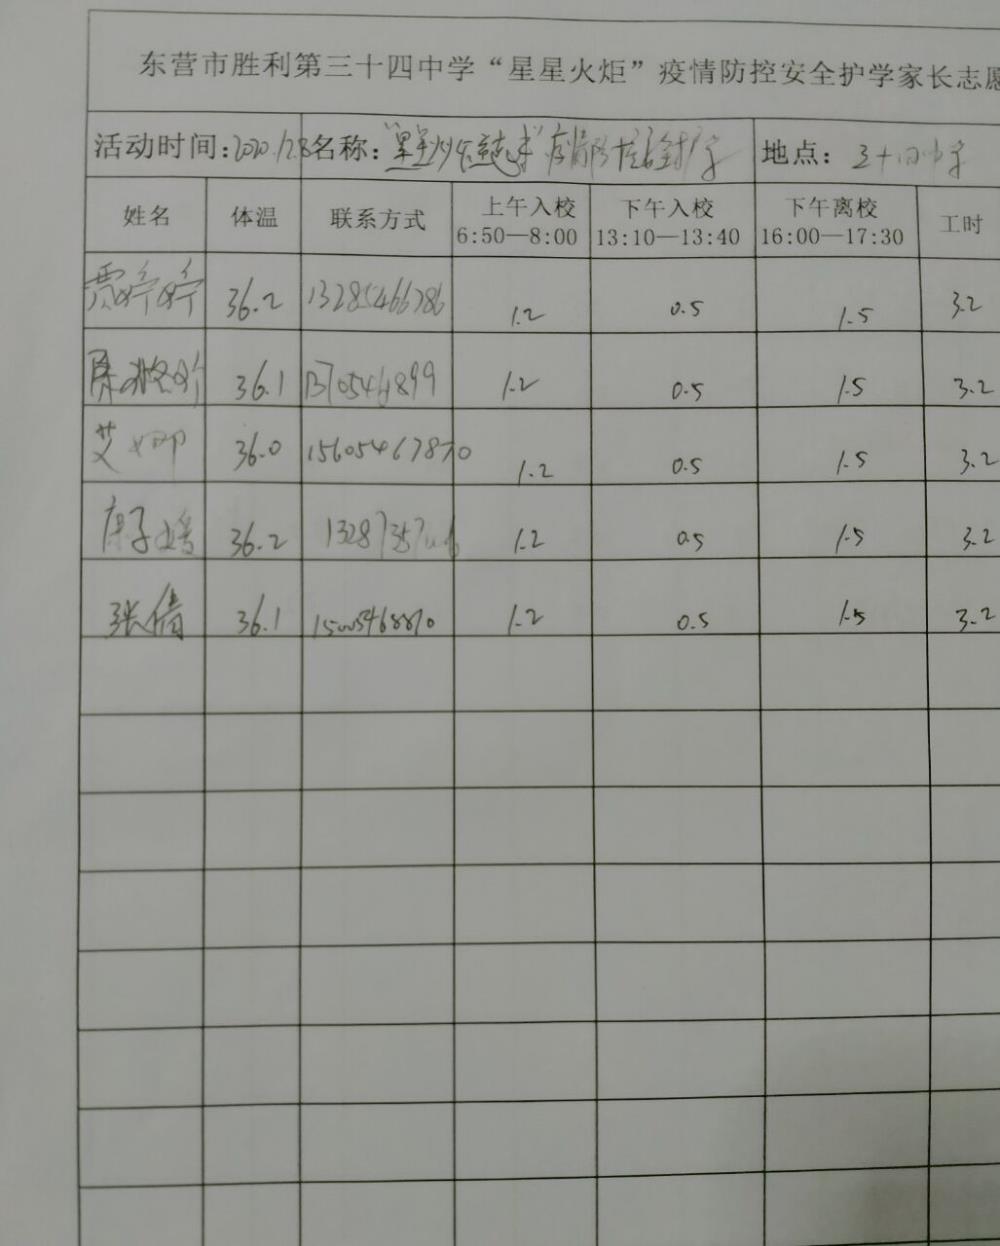 东营市胜利第三十四中学“星星火炬”疫情防控安全护学家长志愿
活动时间:2020.12.8 名称: 疫情防控安全护学 地点: 三十四中学
姓名 体温 联系方式 上午入校 6:50—8:00 下午入校 13:10—13:40 下午离校 16:00—17:30 工时
贾婷婷 36.2 13285466786 1.2 0.5 1.5 3.2
36.1 1.2 0.5 1.5 3.2
艾娜 36.0 15605467870 1.2 0.5 1.5 3.2
康子媛 36.2 1.2 0.5 1.5 3.2
张倩 36.1 1.2 0.5 1.5 3.2